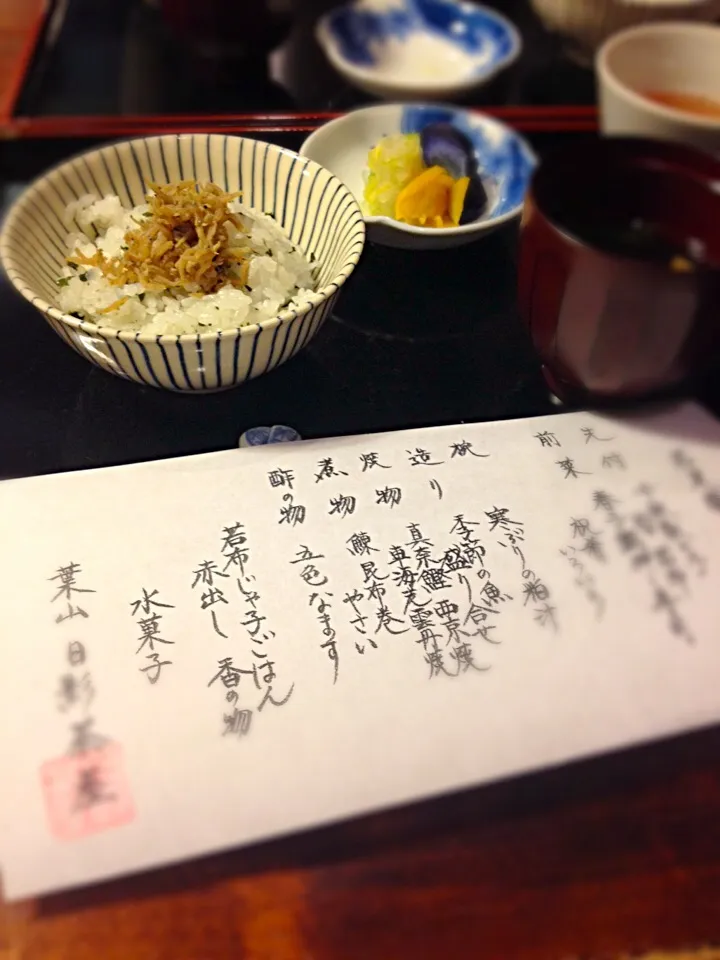 先付
前菜
祝肴いろいろ
椀
寒ぶりの粕汁
造り
季節の魚
盛り合せ
焼物
西京焼
車海老雲丹焼
煮物
鰊昆布巻
やさい
酢の物
五色なます
若布じゃ子ごはん
赤出し
香の物
水菓子
葉山 日影茶屋